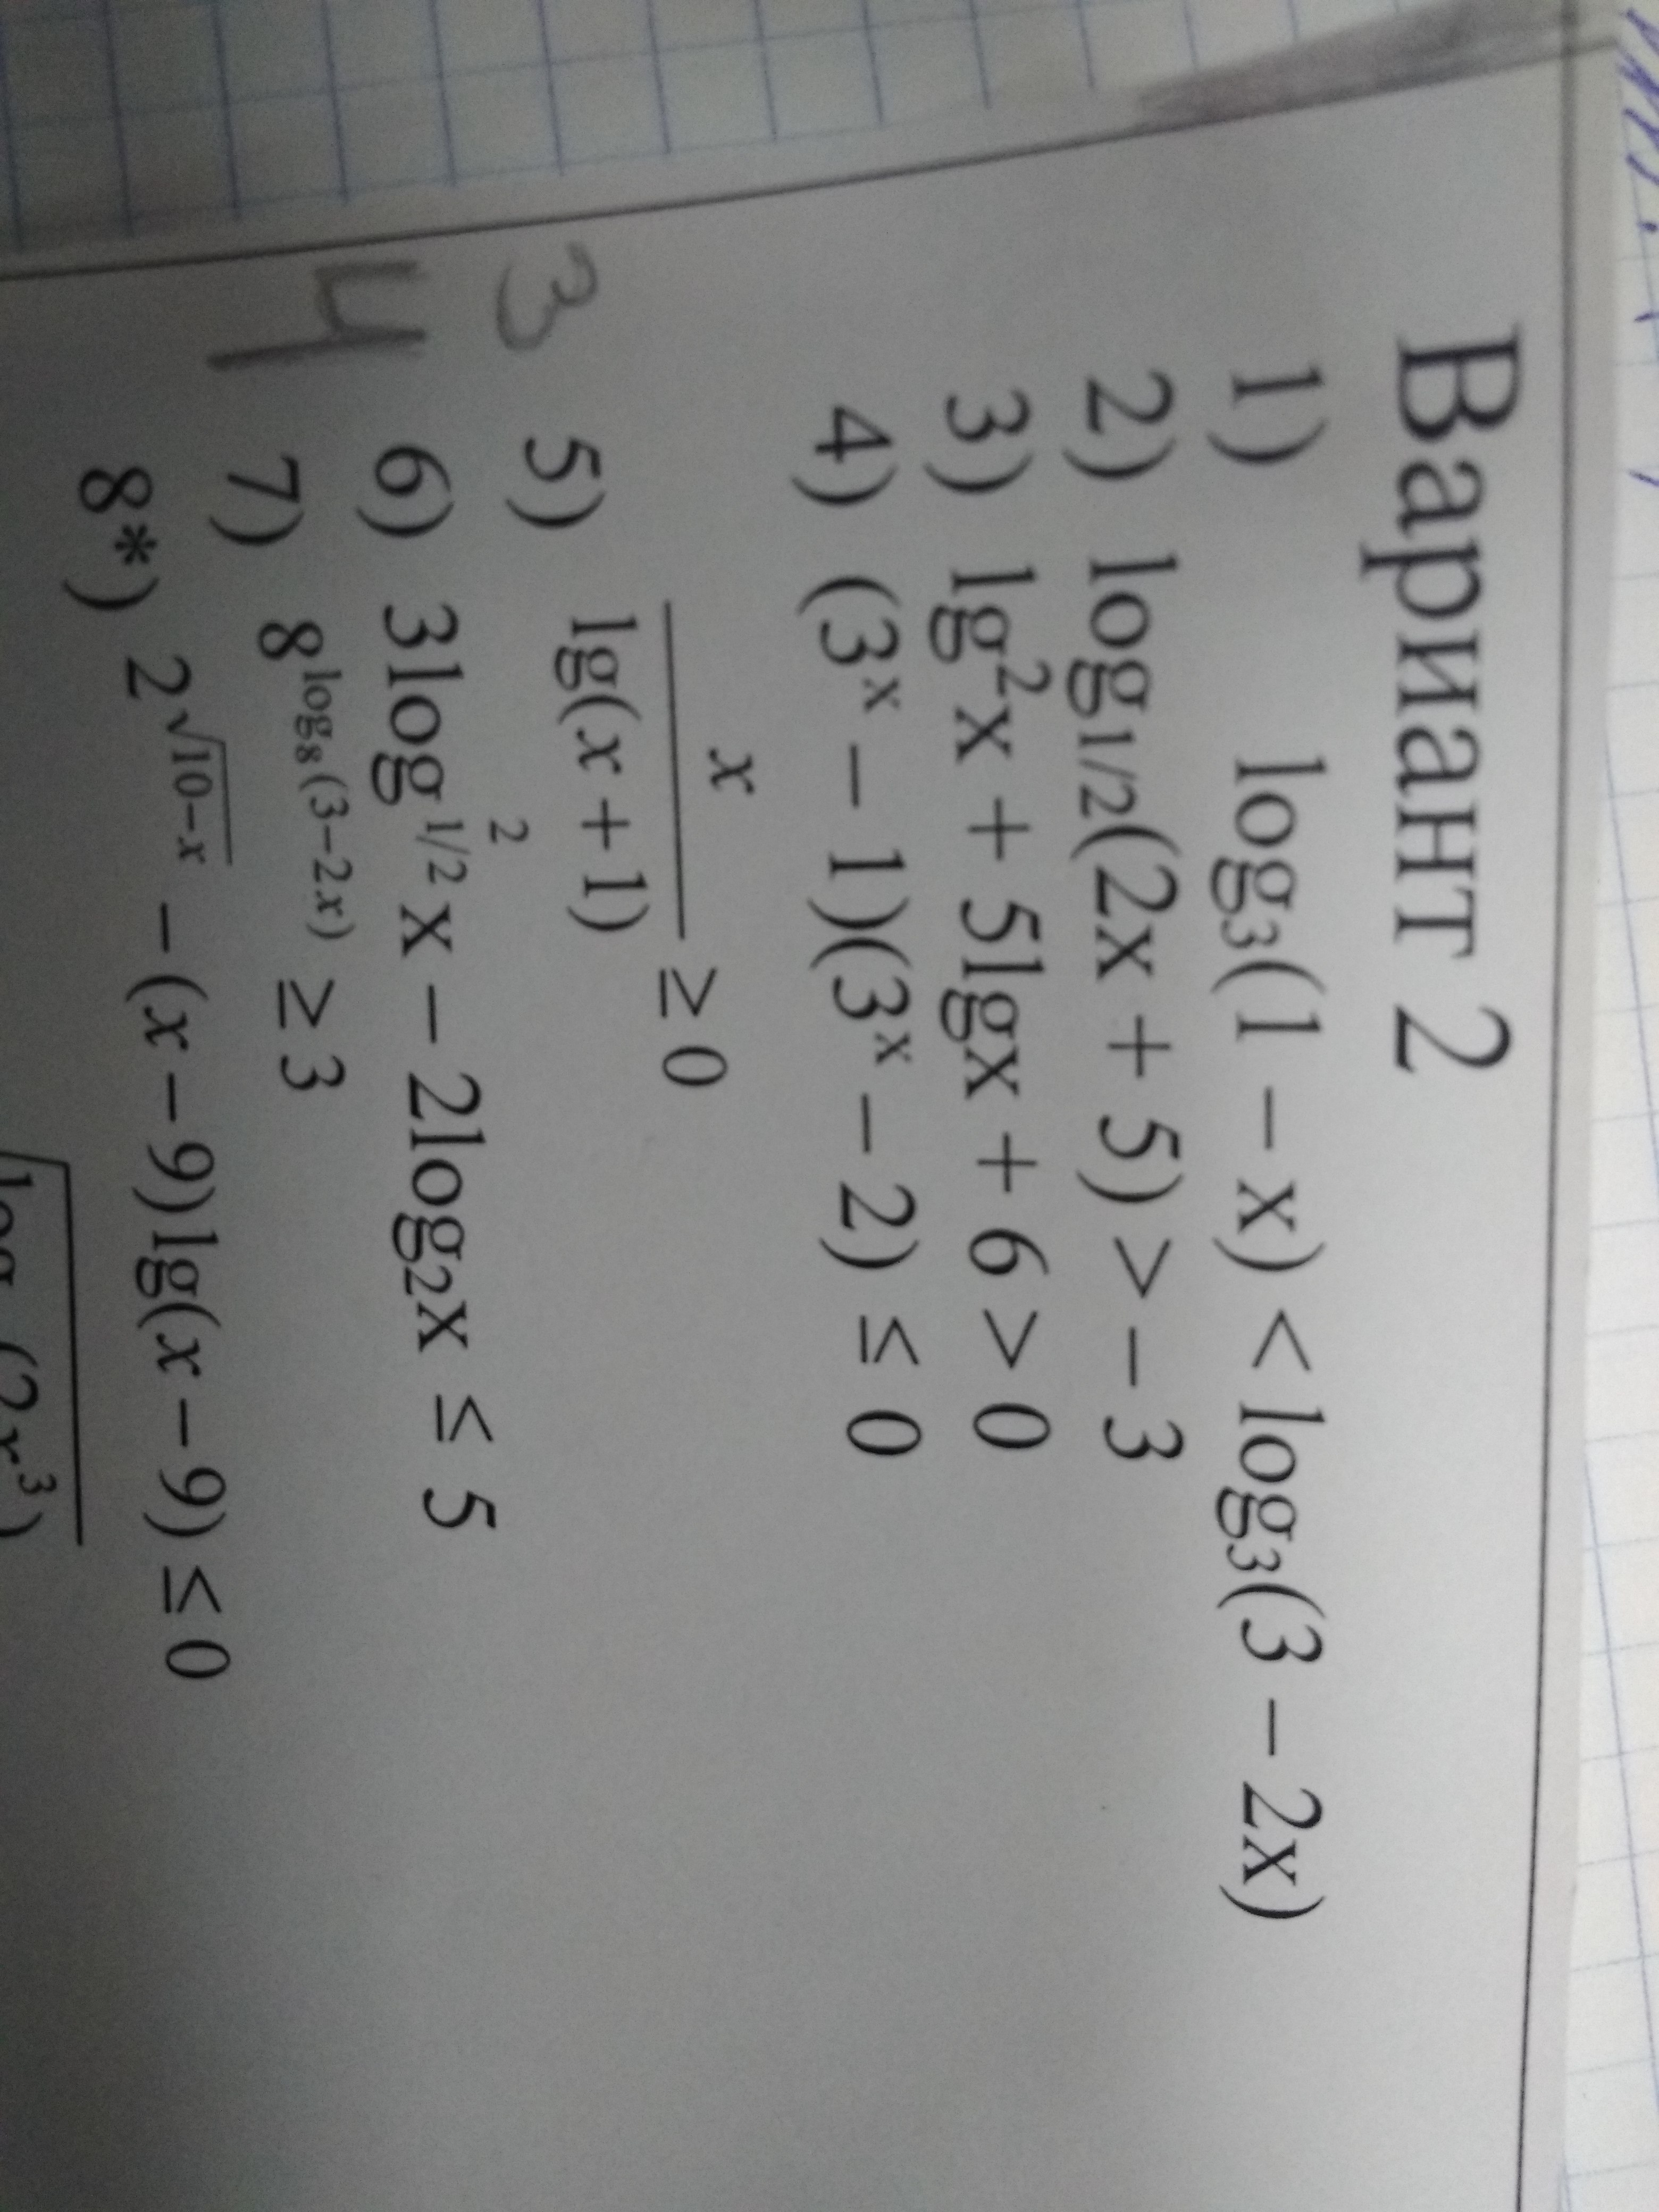 Вариант 2
1) log₃(1 − x) < log₃(3 − 2x)
2) log₁/₂(2x + 5) > −3
3) lg²x + 5lgx + 6 > 0
4) (3ˣ − 1)(3ˣ − 2) ≤ 0
3 5) x / lg(x + 1) ≥ 0
6) 3log²₁/₂ x − 2log₂x ≤ 5
4 7) 8^(log₈(3−2x)) ≥ 3
8*) 2^(√(10−x)) − (x − 9)lg(x − 9) ≤ 0